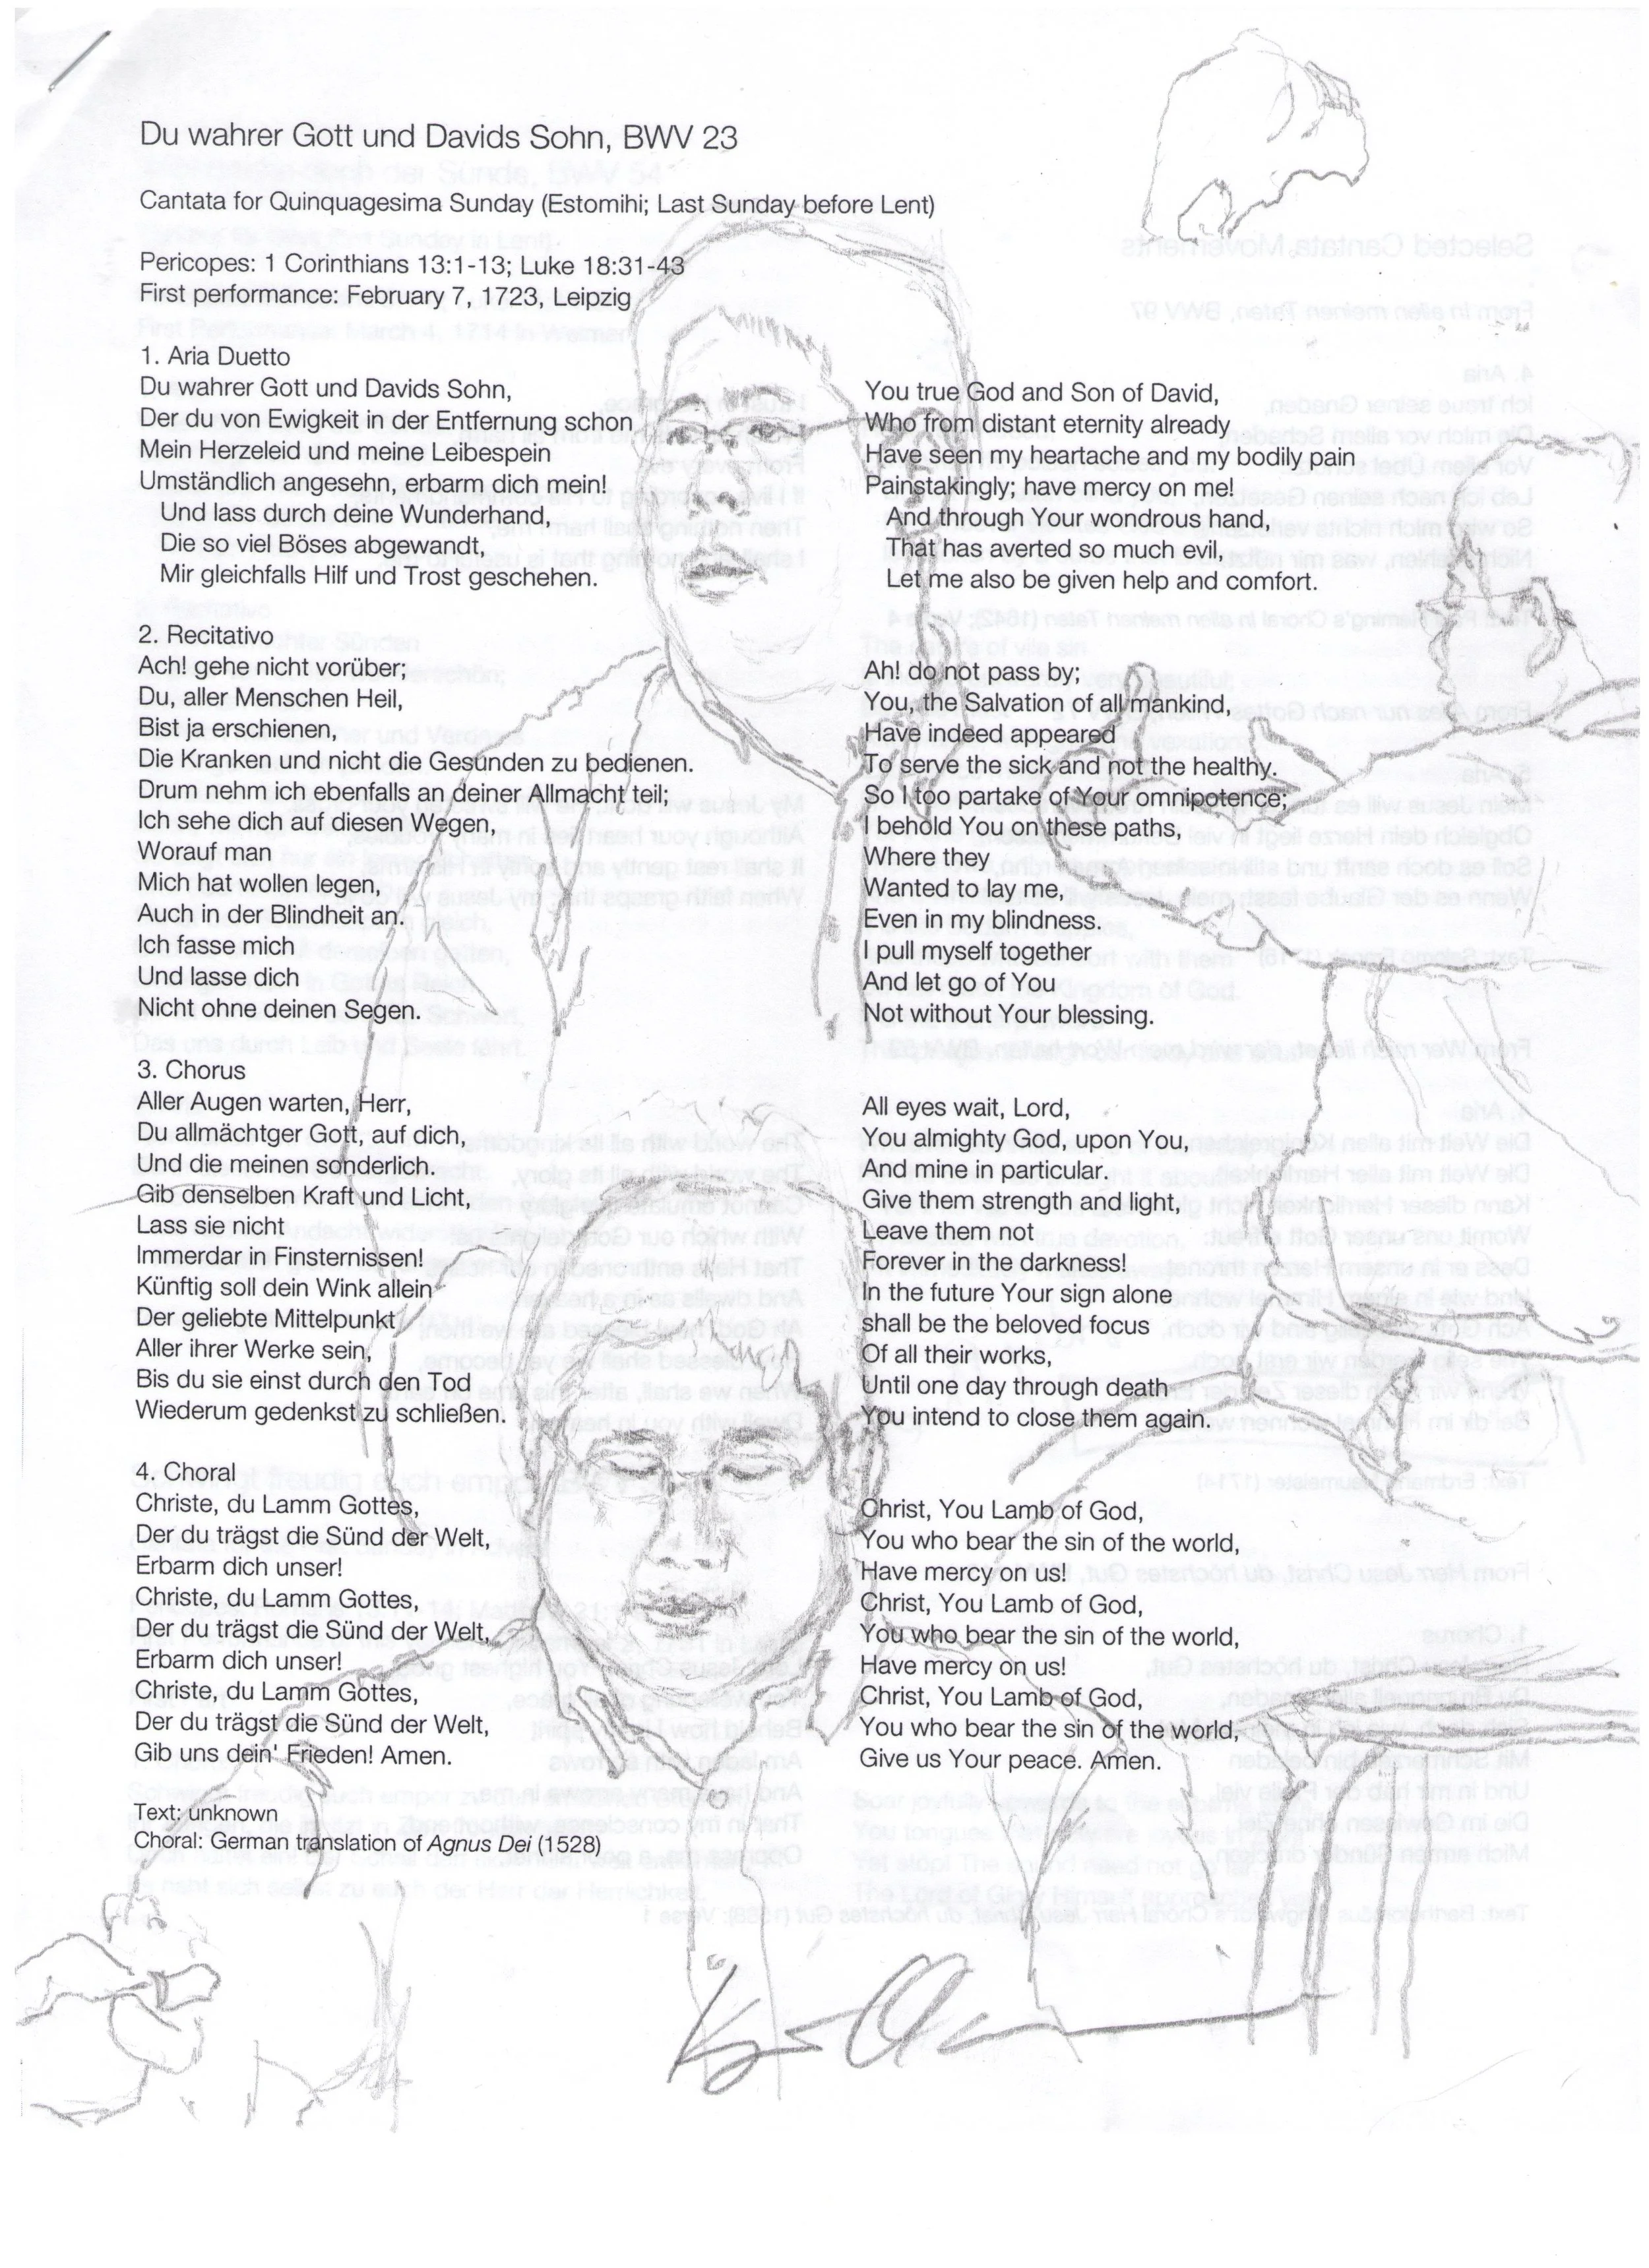 Du wahrer Gott und Davids Sohn, BWV 23
Cantata for Quinquagesima Sunday (Estomihi; Last Sunday before Lent)
Pericopes: 1 Corinthians 13:1-13; Luke 18:31-43
First performance: February 7, 1723, Leipzig
1. Aria Duetto
Du wahrer Gott und Davids Sohn,
Der du von Ewigkeit in der Entfernung schon
Mein Herzeleid und meine Leibespein
Umständlich angesehn, erbarm dich mein!
Und lass durch deine Wunderhand,
Die so viel Böses abgewandt,
Mir gleichfalls Hilf und Trost geschehen.
You true God and Son of David,
Who from distant eternity already
Have seen my heartache and my bodily pain
Painstakingly; have mercy on me!
And through Your wondrous hand,
That has averted so much evil,
Let me also be given help and comfort.
2. Recitativo
Ach! gehe nicht vorüber;
Du, aller Menschen Heil,
Bist ja erschienen,
Die Kranken und nicht die Gesunden zu bedienen.
Drum nehm ich ebenfalls an deiner Allmacht teil;
Ich sehe dich auf diesen Wegen,
Worauf man
Mich hat wollen legen,
Auch in der Blindheit an.
Ich fasse mich
Und lasse dich
Nicht ohne deinen Segen.
Ah! do not pass by;
You, the Salvation of all mankind,
Have indeed appeared
To serve the sick and not the healthy.
So I too partake of Your omnipotence;
I behold You on these paths,
Where they
Wanted to lay me,
Even in my blindness.
I pull myself together
And let go of You
Not without Your blessing.
3. Chorus
Aller Augen warten, Herr,
Du allmächtger Gott, auf dich,
Und die meinen sonderlich.
Gib denselben Kraft und Licht,
Lass sie nicht
Immerdar in Finsternissen!
Künftig soll dein Wink allein
Der geliebte Mittelpunkt
Aller ihrer Werke sein,
Bis du sie einst durch den Tod
Wiederum gedenkst zu schließen.
All eyes wait, Lord,
You almighty God, upon You,
And mine in particular.
Give them strength and light,
Leave them not
Forever in the darkness!
In the future Your sign alone
shall be the beloved focus
Of all their works,
Until one day through death
You intend to close them again.
4. Choral
Christe, du Lamm Gottes,
Der du trägst die Sünd der Welt,
Erbarm dich unser!
Christe, du Lamm Gottes,
Der du trägst die Sünd der Welt,
Erbarm dich unser!
Christe, du Lamm Gottes,
Der du trägst die Sünd der Welt,
Gib uns dein' Frieden! Amen.
Christ, You Lamb of God,
You who bear the sin of the world,
Have mercy on us!
Christ, You Lamb of God,
You who bear the sin of the world,
Have mercy on us!
Christ, You Lamb of God,
You who bear the sin of the world,
Give us Your peace. Amen.
Text: unknown
Choral: German translation of Agnus Dei (1528)